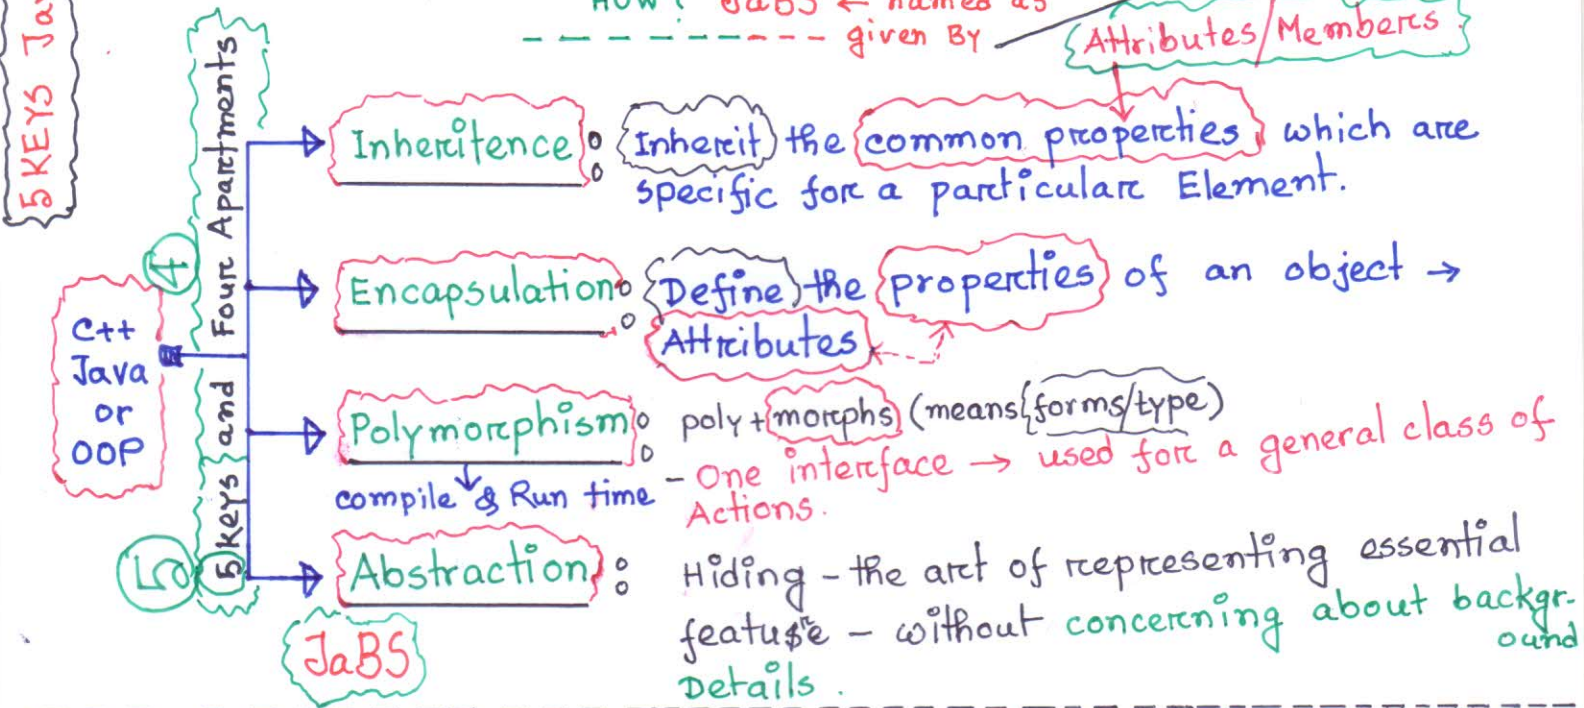 HOW? JaBS ← named as
given By
Attributes/Members
5 KEYS Ja
5 keys and Four Apartments
4
5
C++
Java
or
OOP
Inheritence : Inherit the common properties which are
specific for a particular Element.
Encapsulation : Define the properties of an object →
Attributes
Polymorphism : poly + morphs (means forms/type)
compile & Run time
- One interface → used for a general class of
Actions.
Abstraction : Hiding - the art of representing essential
feature - without concerning about backgr-
ound
Details.
JaBS